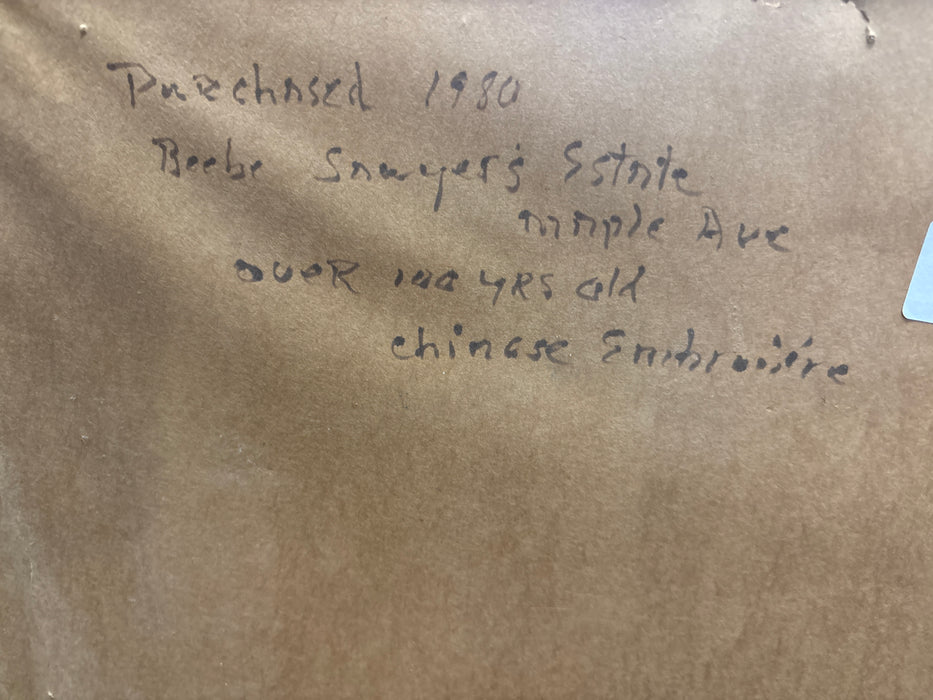 Purchased 1980
Beebe Sawyer's Estate
Maple Ave
OVER 100 YRS old
Chinese Embroidere